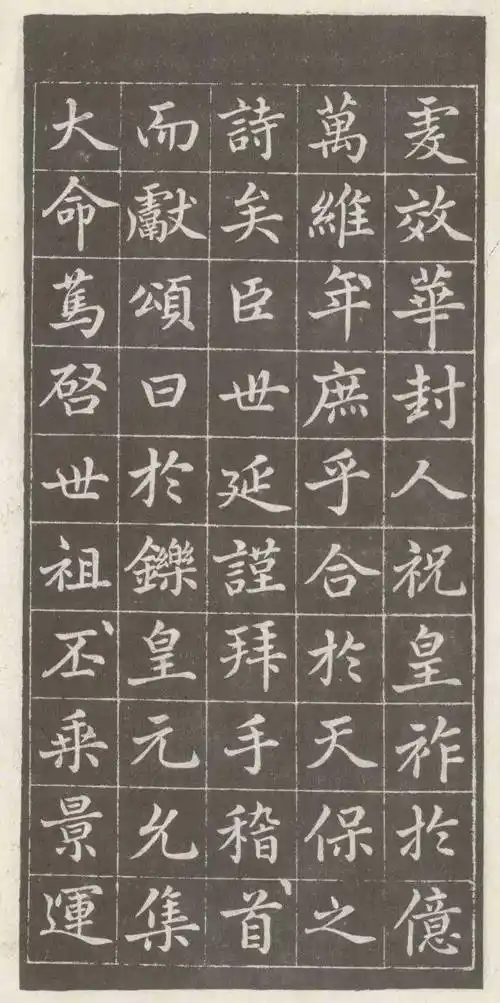 虔效華封人祝皇祚於億
萬維年庶乎合於天保之
詩矣臣世延謹拜手稽首
而獻頌曰於鑠皇元允集
大命篤啓世祖丕乗景運